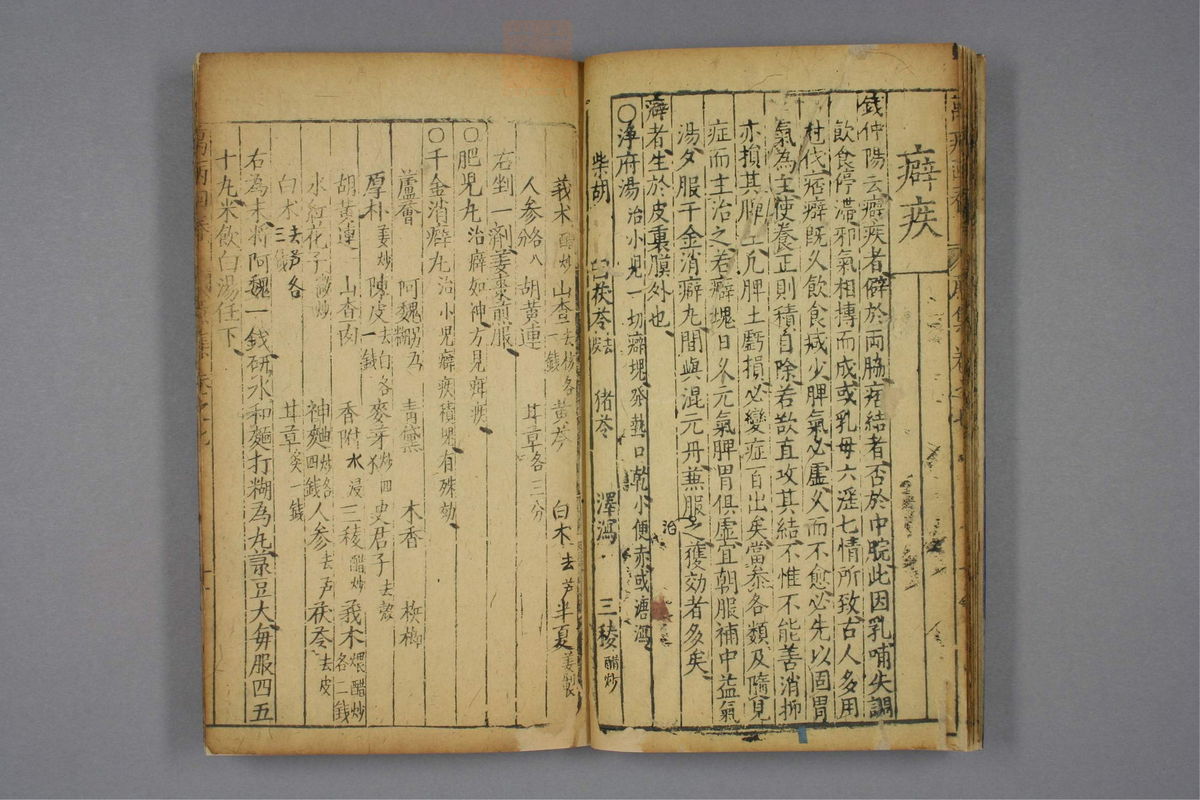 癖疾
錢仲陽云癖疾者僻於兩脇痞結者否於中脘此因乳哺失調
飲食停滯邪氣相搏而成或乳母六淫七情所致古人多用
尅伐痞癖既久飲食减少脾氣必虛久而不愈必先以固胃
氣為主使養正則積自除若欲直攻其結不惟不能善消抑
亦損其脾土凢脾土虧損必變症百出矣當叅各類及隨見
症而主治之若癖塊日久元氣脾胃俱虛宜朝服補中益氣
湯夕服千金消癖丸間與混元丹兼服之獲効者多矣
治
癖者生於皮裏膜外也
○淨府湯 治小児一切癖塊發熱口乾小便赤或溏瀉
柴胡 白茯苓去皮 猪苓 澤瀉 三稜醋炒
莪术醋炒 山查去核各一錢 黃芩 白术去芦 半夏姜製
人參各八分 胡黃連 甘草各三分
右剉一劑姜棗煎服
○肥児丸 治癖如神方見疳疾
○千金消癖丸 治小児癖疾積塊有殊効
蘆薈 阿魏另為糊 青黛 木香
厚朴姜炒 陳皮去白各一錢 麥芽炒四 史君子去殼
胡黃連 山查肉 香附水浸 三稜醋炒 莪术煨醋炒各二錢
水紅花子 神麯炒各四錢 人參去芦 茯苓去皮
白术去芦各三錢 甘草炙一錢
右為末將阿魏一錢研水和麵打糊為丸菉豆大每服四五
十丸米飲白湯任下